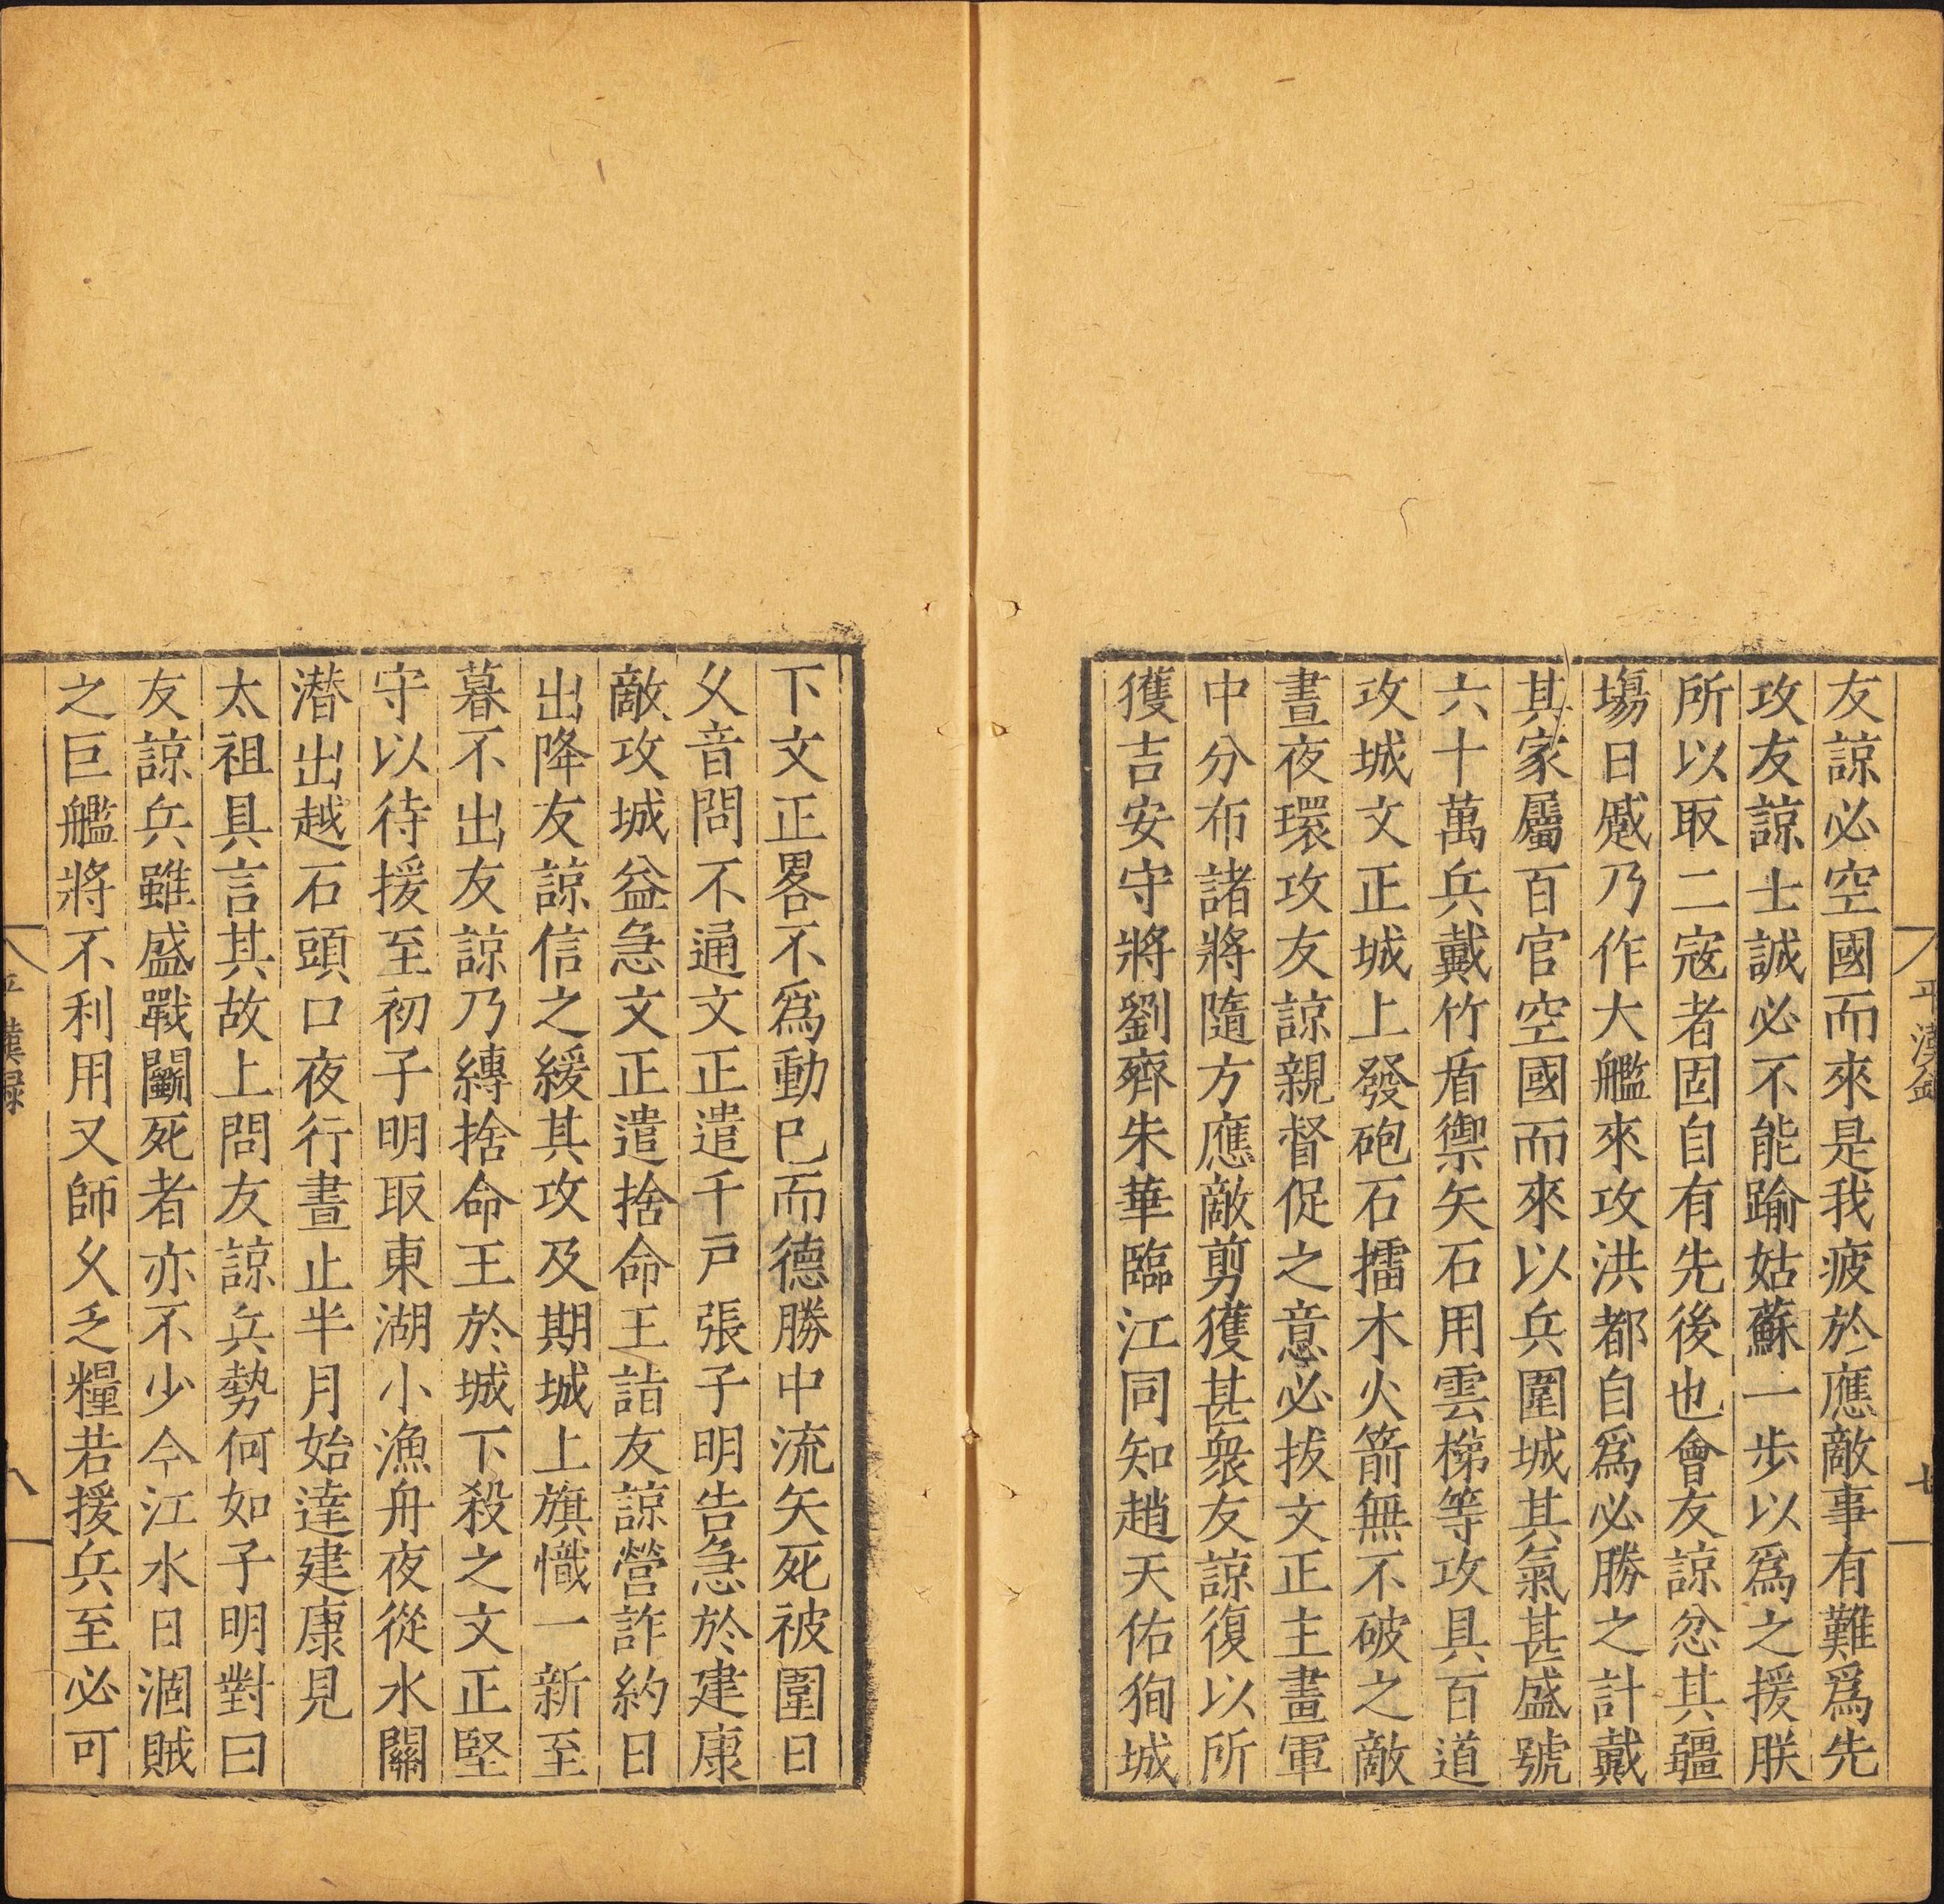 友諒必空國而來是我疲於應敵事有難爲先
攻友諒士誠必不能踰姑蘇一步以爲之援朕
所以取二寇者固自有先後也會友諒忿其疆
場日蹙乃作大艦來攻洪都自爲必勝之計戴
其家屬百官空國而來以兵圍城其氣甚盛號
六十萬兵戴竹盾禦矢石用雲梯等攻具百道
攻城文正城上發砲石擂木火箭無不破之敵
晝夜環攻友諒親督促之意必拔文正主畫軍
中分布諸將隨方應敵剪獲甚衆友諒復以所
獲吉安守將劉齊朱華臨江同知趙天佑狥城
平漢錄
七
下文正畧不爲動已而德勝中流矢死被圍日
乆音問不通文正遣千戸張子明告急於建康
敵攻城益急文正遣捨命王詣友諒營詐約日
出降友諒信之緩其攻及期城上旗幟一新至
暮不出友諒乃縳捨命王於城下殺之文正堅
守以待援至初子明取東湖小漁舟夜從水關
潜出越石頭口夜行晝止半月始達建康見
太祖具言其故上問友諒兵勢何如子明對曰
友諒兵雖盛戰鬭死者亦不少今江水日涸賊
之巨艦將不利用又師乆乏糧若援兵至必可
平漢録
八